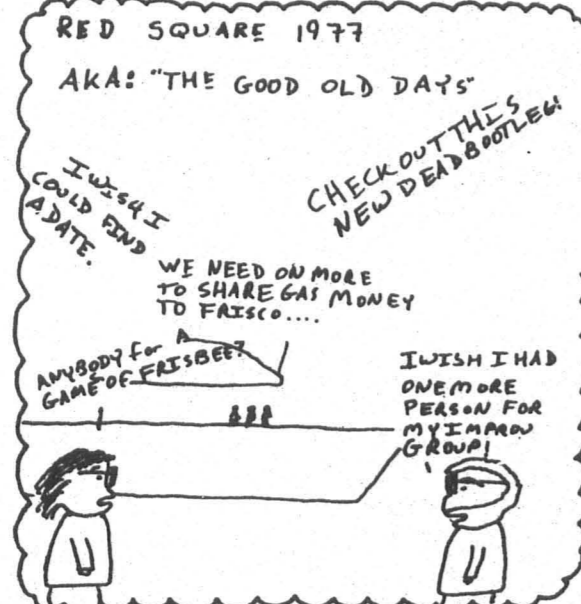 RED SQUARE 1977
AKA: "THE GOOD OLD DAYS"
I WISH I
COULD FIND
A DATE.
CHECK OUT THIS
NEW DEAD BOOTLEG!
WE NEED ON MORE
TO SHARE GAS MONEY
TO FRISCO....
ANYBODY for A
GAME OF FRISBEE?
I WISH I HAD
ONE MORE
PERSON FOR
MY IMPROV
GROUP!